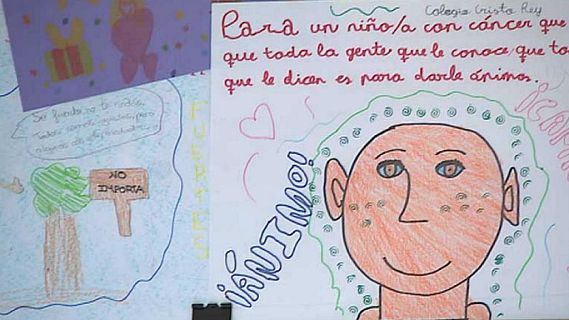 Colegio Cristo Rey
Para un niño/a con cáncer que
que toda la gente que le conoce, que to
que le dicen es para darle ánimos.
Se fuerte, no te rindas,
Todos somos iguales, pero
algunos
NO
IMPORTA
¡ÁNIMO!